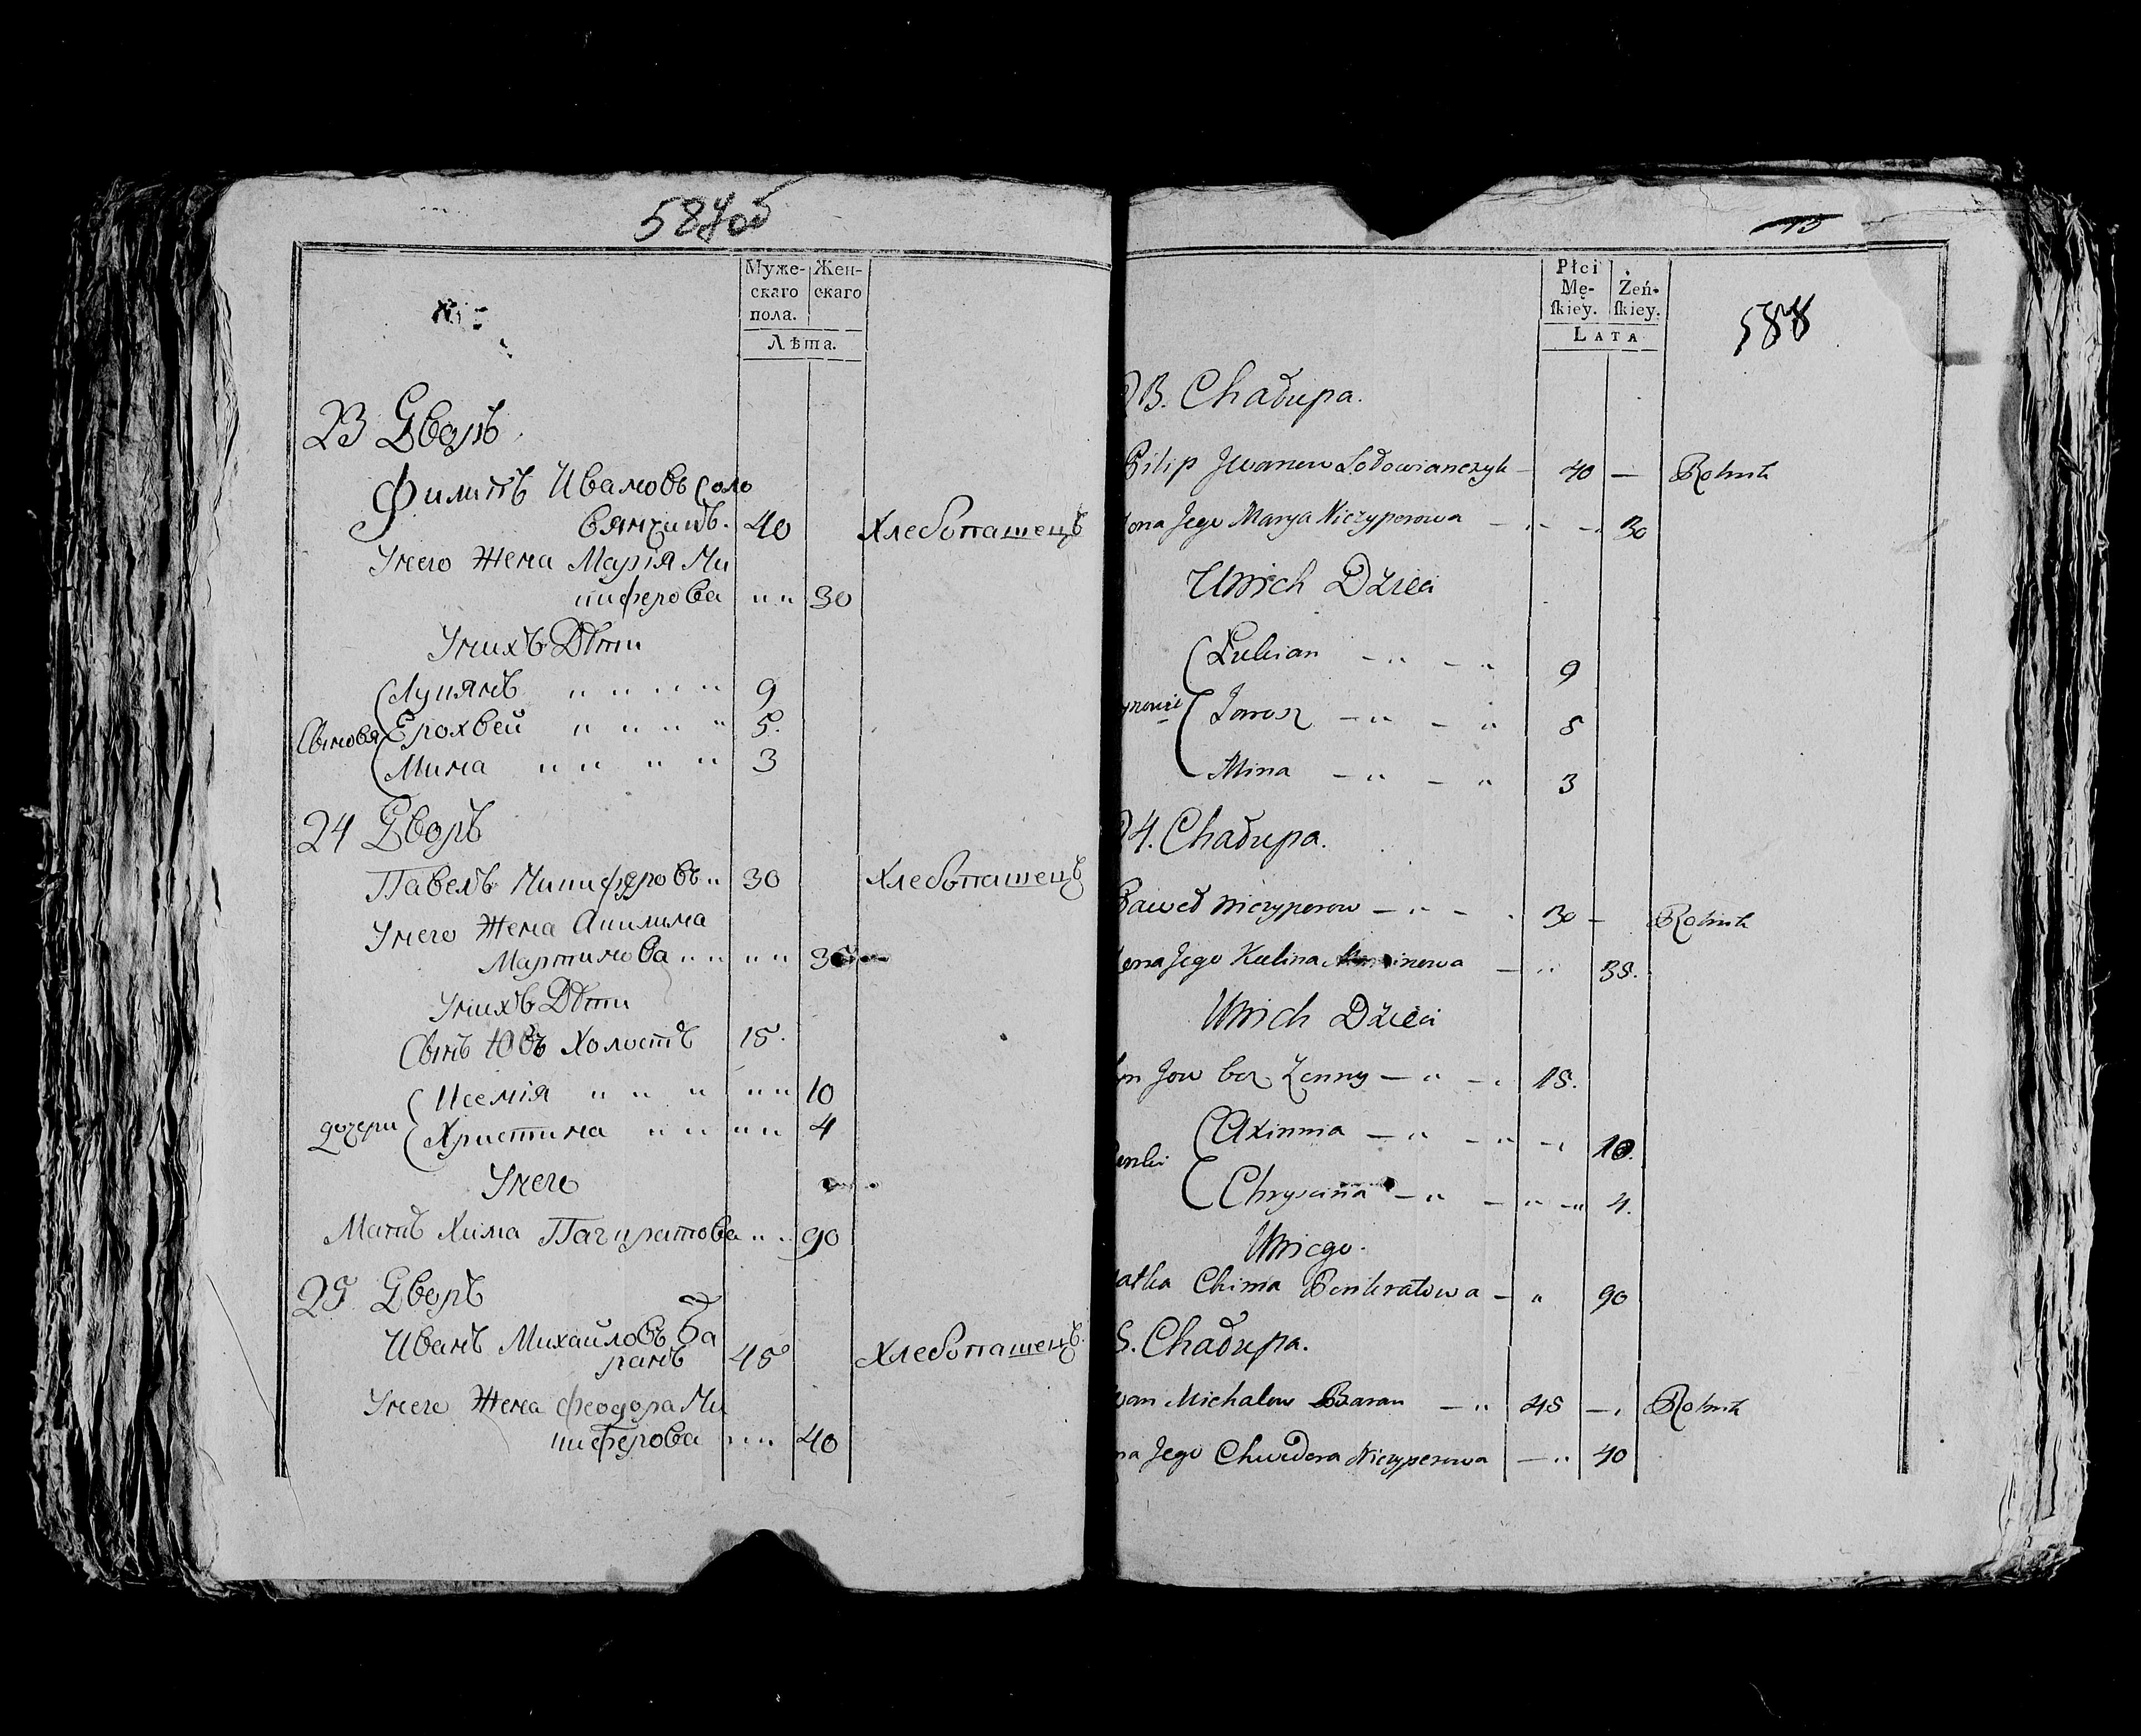 587об
Муже-
скаго
пола.
Жен-
скаго
Лѣта.
23 Дворъ
Филипъ Ивановъ Соло
вянчикъ. 40 Хлебопашецъ
Унего Жена Марія Ни
ниферова " " 30
Унихъ Дѣти
Лукянъ " " " " 9
Сыновя Ерохвей " " " " 5.
Мина " " " " 3
24 Дворъ
Павелъ Ничиферовъ " 30 Хлебопашецъ
Унего Жена Акилина
Мартинова " " " "
Унихъ Дѣти
Сынъ Ювъ Холостъ 15.
Ксенія " " " " " 10
дочери Христина " " " " 4
Унего
Мать Хима Панкратова " " 90
25 Дворъ
Иванъ Михайловъ Ба
ранъ 45 Хлебопашецъ.
Унего Жена Феодора Ни
ниферова " " " 40
15
Płci
Mę-
ſkiey.
Żeń-
ſkiey.
LATA
588
23. Chałupa.
Pilip Jwanow Sołowianczyk – 40 – Rolnik
ona Jego Marya Niczyperowa – " – " 30
Unich Dzieci
Łukian – " – " 9
ynowie Jarosz – " – " 5
Mina – " – " 3
24. Chałupa.
Paweł Niczyperow – " – " 30 – Rolnik
ona Jego Kulina – " 35.
Unich Dzieci
yn Jow bez Zenny – " – " 15.
Axinnia – " – " – " 10.
Chryscina – " – " – " 4.
Uniego.
atka Chima Penkratowa – " 90
5. Chałupa.
wan Michałow Baran – " 45 – " Rolnik
na Jego Chwedora Niczyperowa – " 40